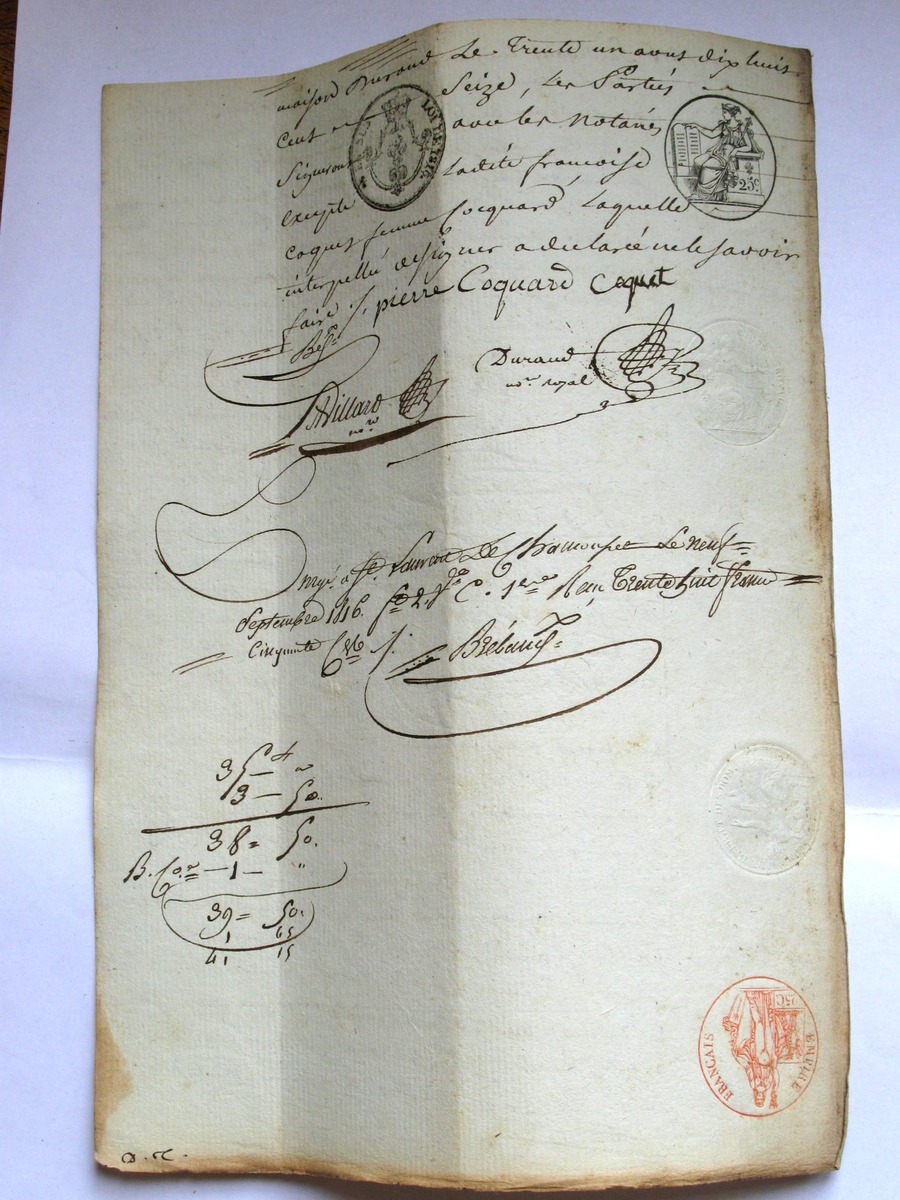 maison Durand Le Trente un aout dix huit
Cent Seize, Les Parties
Signeront avec les Notaires
excepté Ladite francoise
coquet femme Cocquard, Laquelle
interpellée designer a declaré ne le savoir
faire /. pierre Coquard Coquet
LOI DE 1816.
25c
Durand
nore royal
Villard
nore
St. Laurent De Chamousset Le neuf
Septembre 1816. fo 2. C. 1ere Recu Trente huit francs
Cinquante
35 —
3 — 50.
38 = 50.
B. — 1 — "
39 = 50.
1 65
41 15
EMPIRE FRANÇAIS